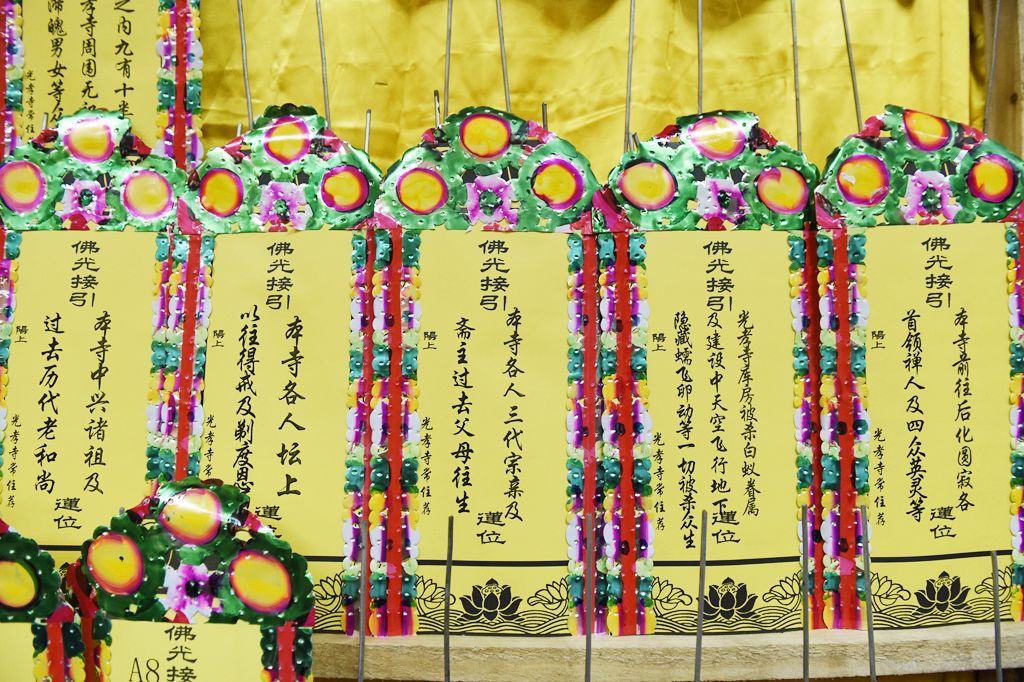 之内九有十类
孝寺周围无祀
滞魄男女等众
光孝寺常住
佛光接引
本寺中兴诸祖及
过去历代老和尚
蓮位
陽上
光孝寺常住荐
佛光接引
本寺各人坛上
以往得戒及剃度恩
蓮
陽上
光孝寺常住
佛光接引
本寺各人三代宗亲及
斋主过去父母往生
蓮位
陽上
光孝寺常住荐
佛光接引
光孝寺库房被杀白蚁眷属
及建设中天空飞行地下
隐藏蠕飞卵动等一切被杀众生
蓮位
陽上
光孝寺常住荐
佛光接引
本寺前往后化圆寂各
首领禅人及四众英灵等
蓮位
陽上
光孝寺常住荐
佛光接
A8